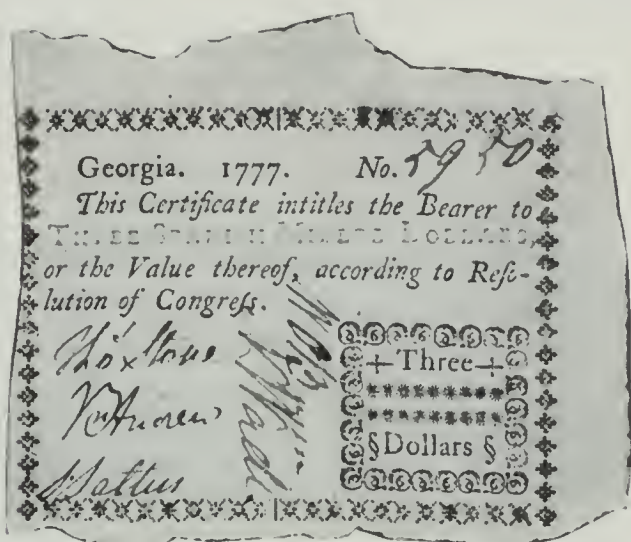 Georgia. 1777. No. 5950
This Certificate intitles the Bearer to
THREE SPANISH MILLED DOLLARS,
or the Value thereof, according to Reſo-
lution of Congreſs.
Thoˢ Stone
Andrew
Three
§ Dollars §